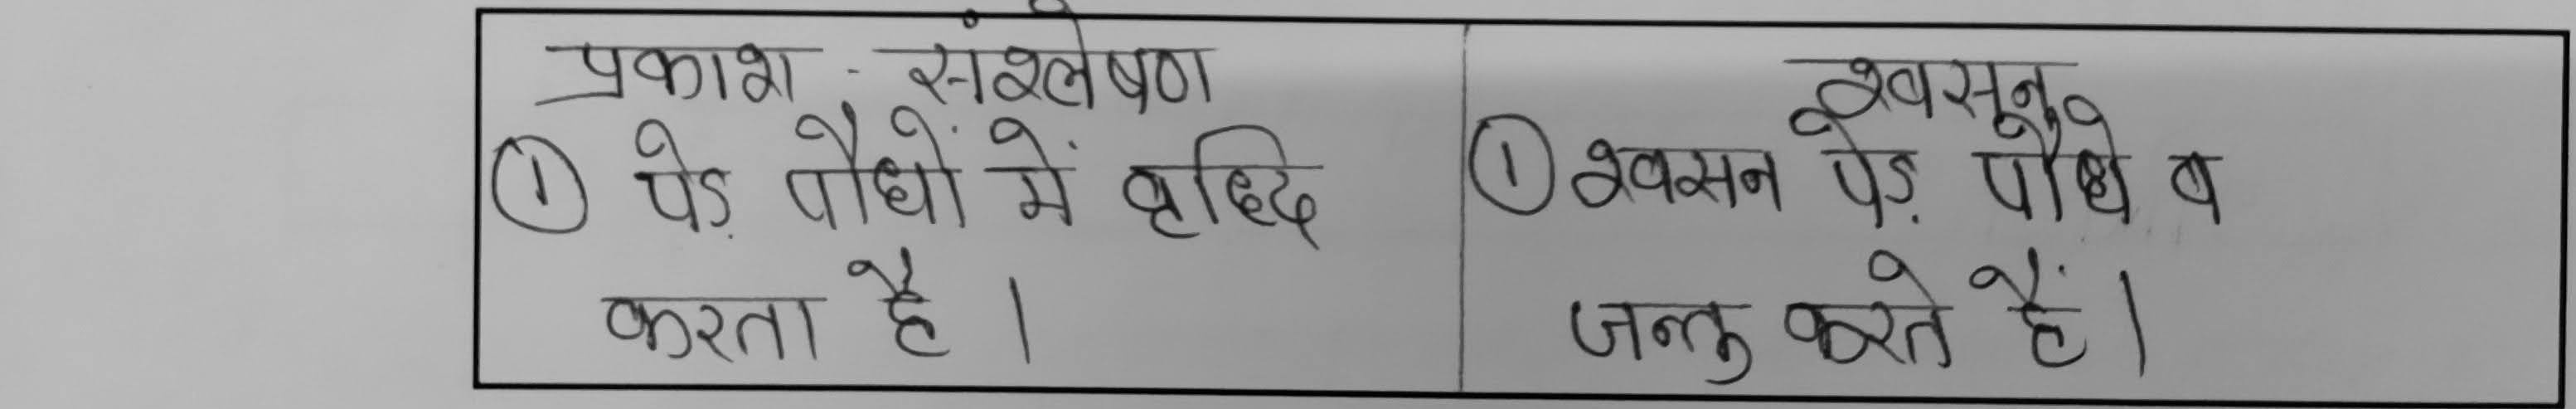 प्रकाश - संश्लेषण
① पेड़ पौधों में वृध्दि
करता है ।
श्वसन
① श्वसन पेड़ पौधे व
जन्तु करते हैं ।